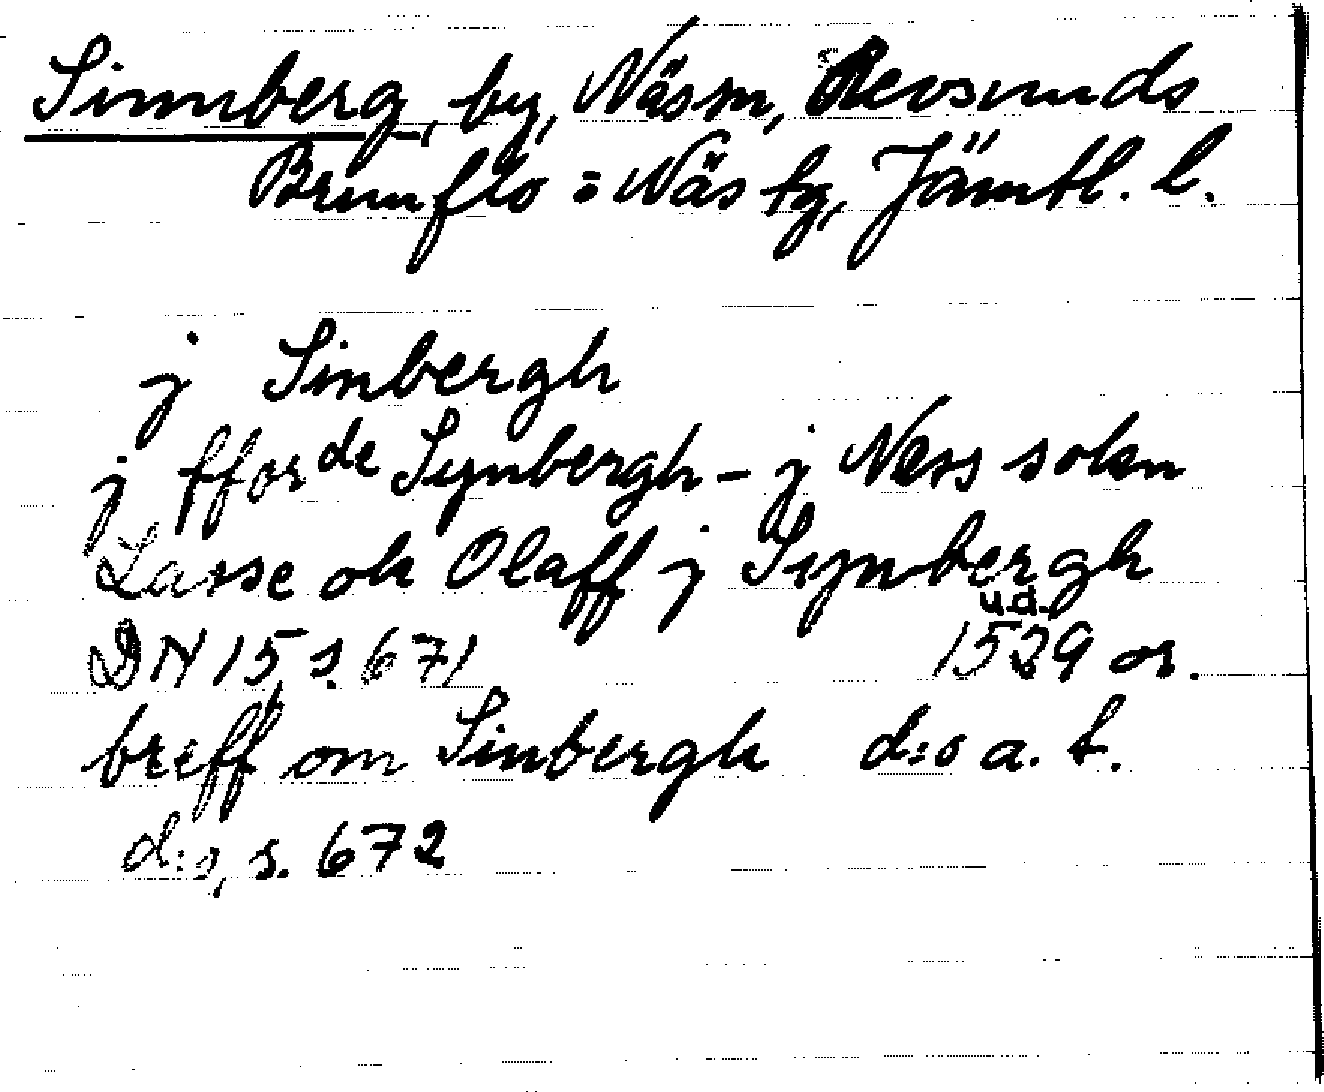 Sinnberg, by, Näs sn, Revsunds
Brunflo o Näs tg, Jämtl. l.
j Sinbergh
j fforde Synbergh - j Ness sokn
Lasse ok Olaff j Synbergh
u.d.
DN 15, s. 671 1529 or.
breff om Sinbergh d:o a. t.
d:o, s. 672